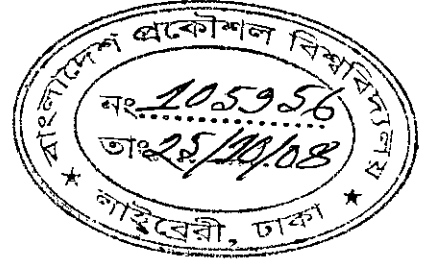 বাংলাদেশ প্রকৌশল বিশ্ববিদ্যালয়
নং 105956
তাং 25/10/08
★ লাইবেরী, ঢাকা ★